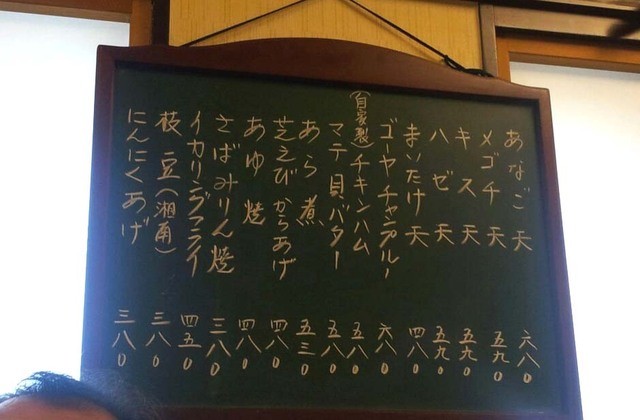 あなご天 六八〇
メゴチ天 五九〇
キス天 五九〇
ハゼ天 五九〇
まいたけ天 四八〇
ゴーヤチャンプルー 六八〇
(自家製)チキンハム 五八〇
マテ貝バター 五八〇
あら煮 五三〇
芝えびからあげ 四八〇
あゆ焼 四八〇
さばみりん焼 三八〇
イカリングフライ 四五〇
枝豆(湘南) 三八〇
にんにくあげ 三八〇